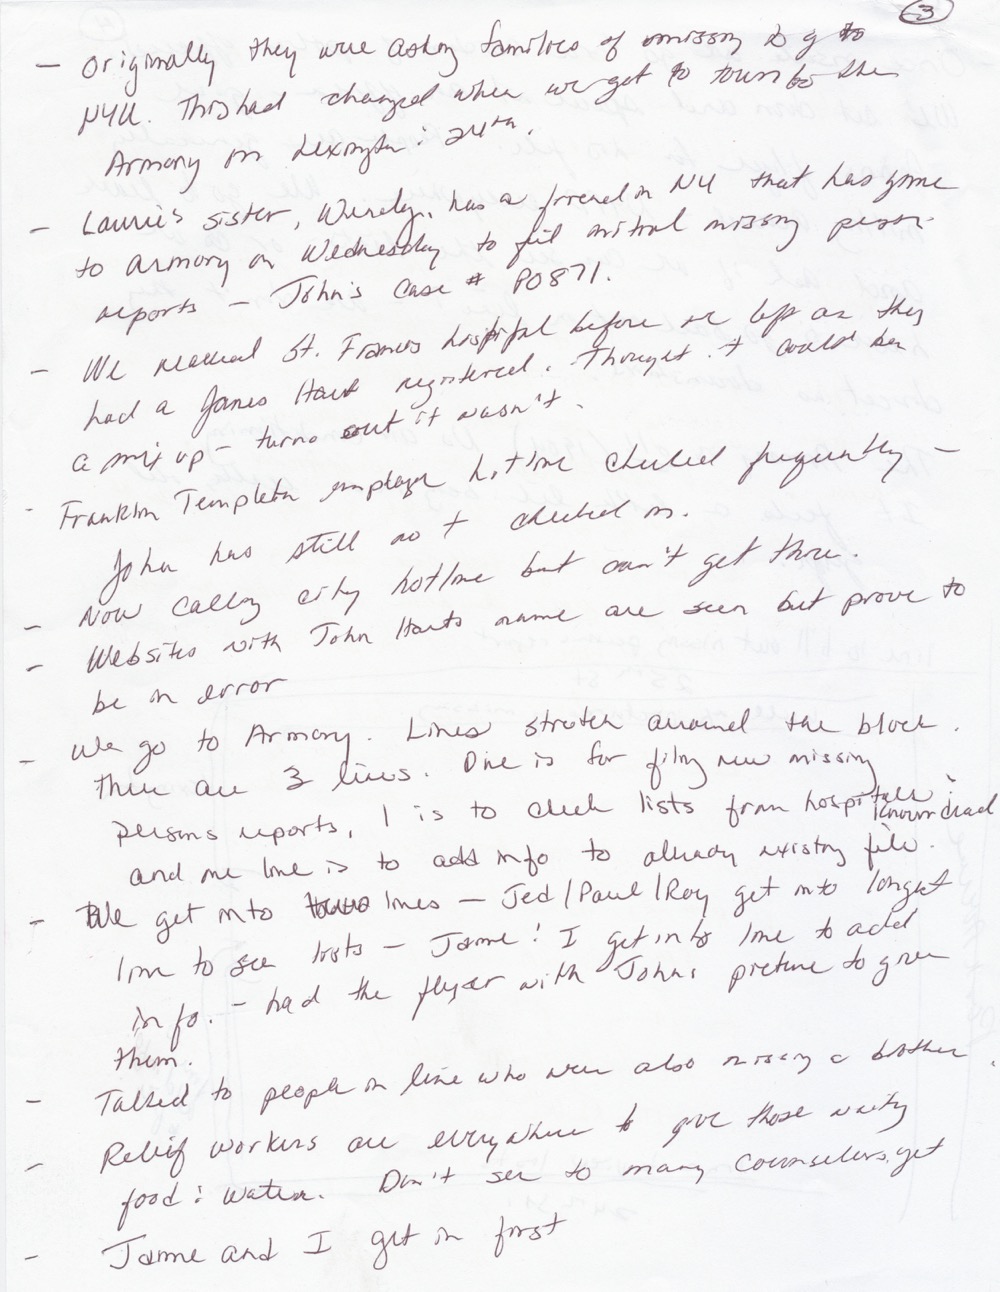 3
- Originally they were asking families of missing to go to
NYU. This had changed when we get to town to the
Armory on Lexington : 24th.
- Laurie's sister, Wendy, has a friend in NY that has gone
to armory on Wednesday to fill initial missing person
reports - John's Case # P0871.
- We recheck St. Francis hospital before we left as they
had a James Hart registered. Thought it could be
a mix up - turns out it wasn't.
- Franklin Templeton employee hotline checked frequently -
John has still not checked in.
- Now calling city hotline but can't get thru.
- Websites with John Harts name are seen but prove to
be in error
- We go to Armory. Lines stretch around the block.
There are 3 lines. One is for filing new missing
persons reports, 1 is to check lists from hospitals : known dead
and one line is to add info to already existing file.
- We get into lines - Jed/Paul/Roy get into longest
line to see lists - Jaime : I get into line to add
info. - had the flyer with John's picture to give
them.
- Talked to people in line who were also missing a brother.
- Relief workers are everywhere to give those waiting
food : water. Don't see to many counselors, yet
- Jaime and I get in first